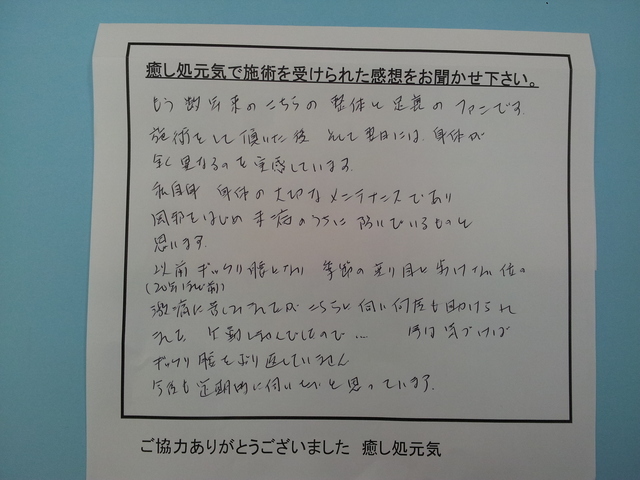 癒し処元気で施術を受けられた感想をお聞かせ下さい。
もう数年来のこちらの整体と足裏のファンです。
施術をして頂いた後 そして翌日には、身体が
全く異なるのを実感しています。
私自身 身体の大切なメンテナンスであり
風邪をはじめ未病のうちに防いでいるものと
思います。
以前ギックリ腰となり 季節の変り目と歩けない位の
(20年以前)
激痛に苦しみましたが こちらに伺い何度も助けられ
ました。
ギックリ腰をぶり返していません
今後も定期的に伺いたいと思っています。
ご協力ありがとうございました 癒し処元気